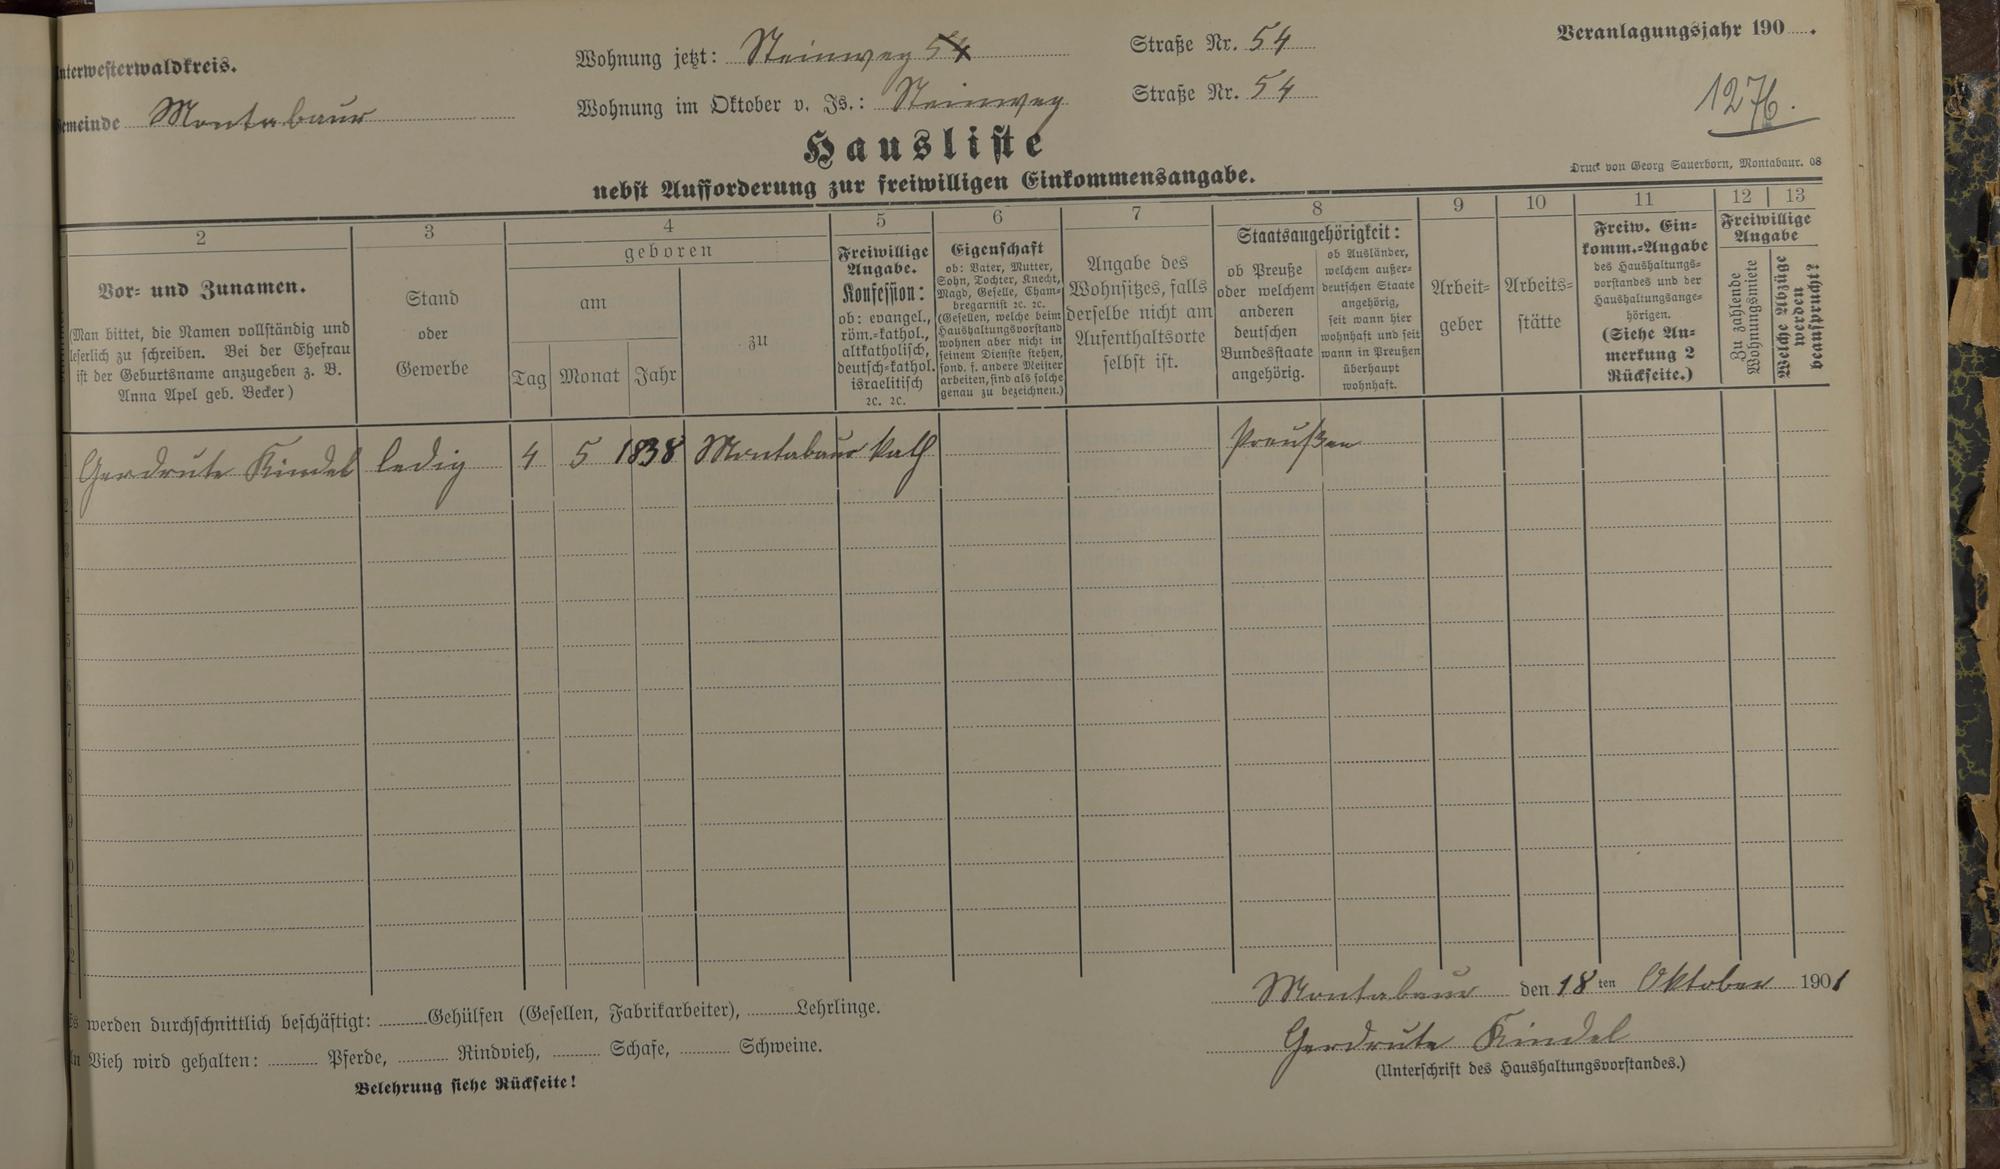 Unterwesterwaldkreis.
Gemeinde Montabaur
Wohnung jetzt: Steinweg 54 Straße Nr. 54
Wohnung im Oktober v. Js.: Steinweg Straße Nr. 54
Veranlagungsjahr 190 .
1276.
Hausliste
nebst Aufforderung zur freiwilligen Einkommensangabe.
Druck von Georg Sauerborn, Montabaur. 08
2 3 4 5 6 7 8 9 10 11 12 13
Vor- und Zunamen.
(Man bittet, die Namen vollständig und
leserlich zu schreiben. Bei der Ehefrau
ist der Geburtsname anzugeben z. B.
Anna Apel geb. Becker)
Stand
oder
Gewerbe
geboren
am
Tag Monat Jahr
zu
Freiwillige
Angabe.
Konfession:
ob: evangel.,
röm.-kathol.,
altkatholisch,
deutsch-kathol.
israelitisch
ꝛc. ꝛc.
Eigenschaft
ob: Vater, Mutter,
Sohn, Tochter, Knecht,
Magd, Geselle, Cham-
bregarnist ꝛc. ꝛc.
(Gesellen, welche beim
Haushaltungsvorstand
wohnen aber nicht in
seinem Dienste stehen,
sond. f. andere Meister
arbeiten, sind als solche
genau zu bezeichnen.)
Angabe des
Wohnsitzes, falls
derselbe nicht am
Aufenthaltsorte
selbst ist.
Staatsangehörigkeit:
ob Preuße
oder welchem
anderen
deutschen
Bundesstaate
angehörig.
ob Ausländer,
welchem außer-
deutschen Staate
angehörig,
seit wann hier
wohnhaft und seit
wann in Preußen
überhaupt
wohnhaft.
Arbeit-
geber
Arbeits-
stätte
Freiw. Ein-
komm.-Angabe
des Haushaltungs-
vorstandes und der
Haushaltungsange-
hörigen.
(Siehe An-
merkung 2
Rückseite.)
Freiwillige
Angabe
Zu zahlende
Wohnungsmiete
Welche Abzüge
werden
beansprucht?
1 Gerdrute Kindel ledig 4 5 1838 Montabaur kath Preußen
2
3
4
5
6
7
8
9
0
1
2
Montabaur den 18ten Oktober 1901
Es werden durchschnittlich beschäftigt: Gehülfen (Gesellen, Fabrikarbeiter), Lehrlinge.
Gerdrute Kindel
An Vieh wird gehalten: Pferde, Rindvieh, Schafe, Schweine.
(Unterschrift des Haushaltungsvorstandes.)
Belehrung siehe Rückseite!